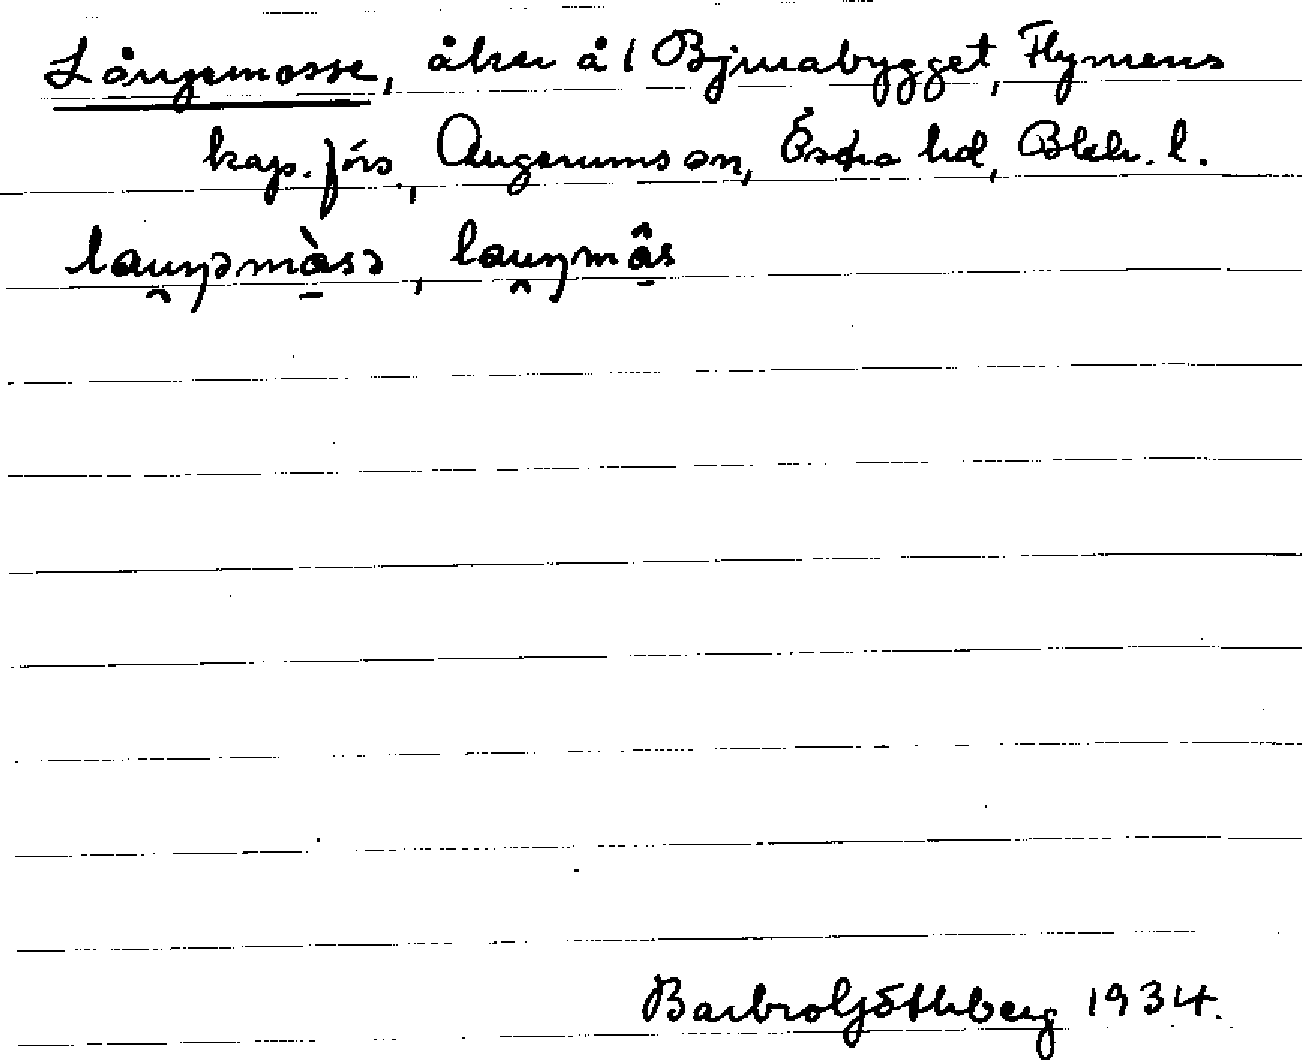 Långemosse, åker å 1 Bjurabygget, Flymens
kap. förs., Augerums sn, Östra hd, Blek. l.
lauŋəmàsə, lauŋmâs
Barbro Göthberg 1934.